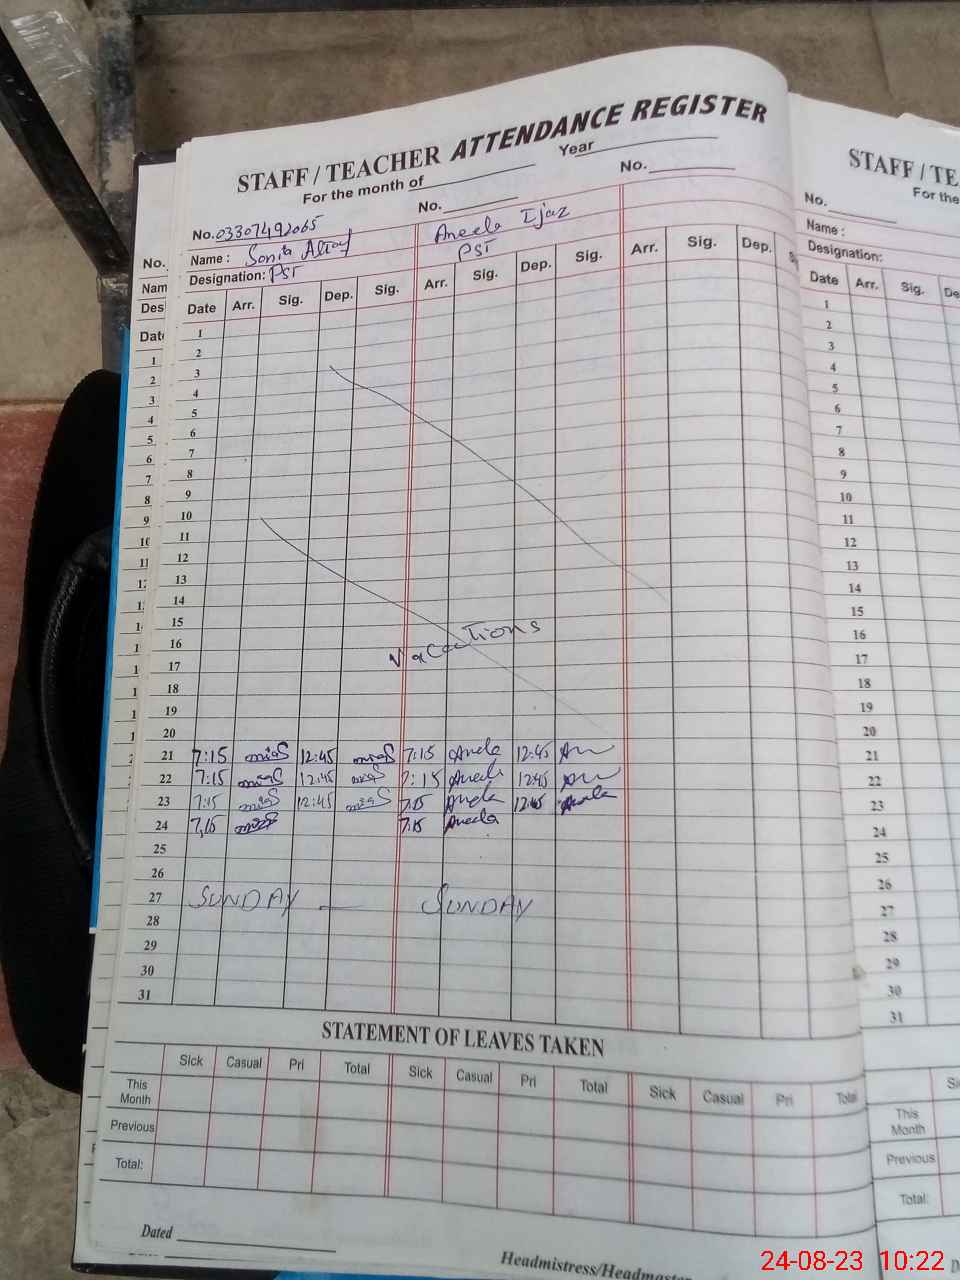 STAFF / TEACHER ATTENDANCE REGISTER
For the month of Year
No. 03307492065 No. No.
Name : Sonia Altaf Aneela Ijaz
Designation: PST PST
Date Arr. Sig. Dep. Sig. Arr. Sig. Dep. Sig. Arr. Sig. Dep. S
1
2
3
4
5
6
7
8
9
10
11
12
13
14
15
16 Vacations
17
18
19
20
21 7:15 12:45 7:15 Aneela 12:45
22 7:15 12:45 7:15 Aneela 12:45
23 7:15 12:45 7:15 Aneela 12:45 Aneela
24 7,15 7:15 Aneela
25
26
27 SUNDAY — SUNDAY
28
29
30
31
STATEMENT OF LEAVES TAKEN
Sick Casual Pri Total Sick Casual Pri Total Sick Casual Pri Total
This Month
Previous
Total:
Dated
Headmistress/Headmaster
No.
Nam
Des
Date
1
2
3
4
5
6
7
8
9
10
11
STAFF / TE
For the
No.
Name :
Designation:
Date Arr. Sig. De
1
2
3
4
5
6
7
8
9
10
11
12
13
14
15
16
17
18
19
20
21
22
23
24
25
26
27
28
29
30
31
This Month
Previous
Total:
24-08-23 10:22